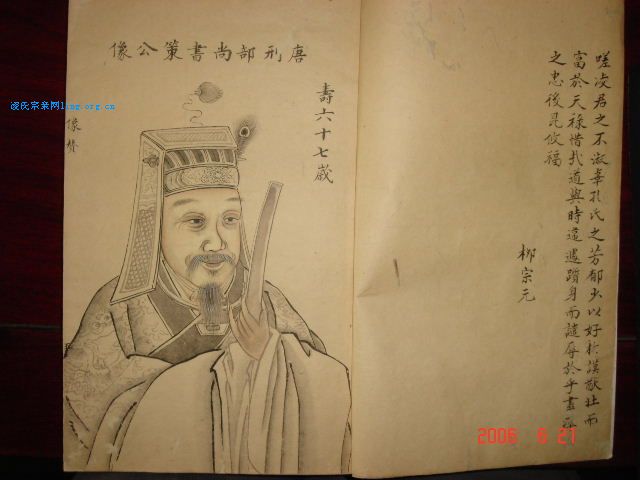 唐刑部尚書策公像
壽六十七歲
像贊
凌氏宗亲网ling.org.cn
嗟凌君之不淑幸孔氏之芳郁少以好於謨猷壯而
富於天祿惜哉道與時違遇躓身而譴辱於乎盡
之忠後昆攸福
柳宗元
2006 8 27